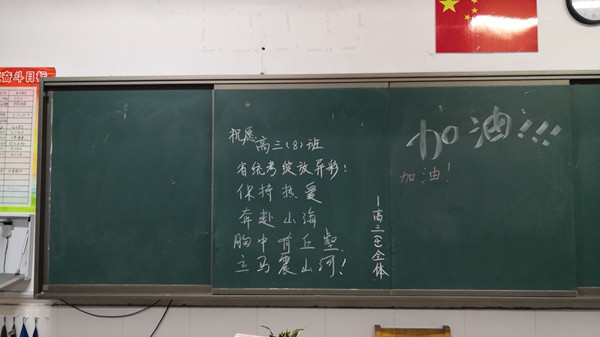 奋斗目标
祝愿高三(8)班
省统考绽放异彩!
保持热爱
奔赴山海
胸中有丘壑
立马震山河!
加油!!!
加油!